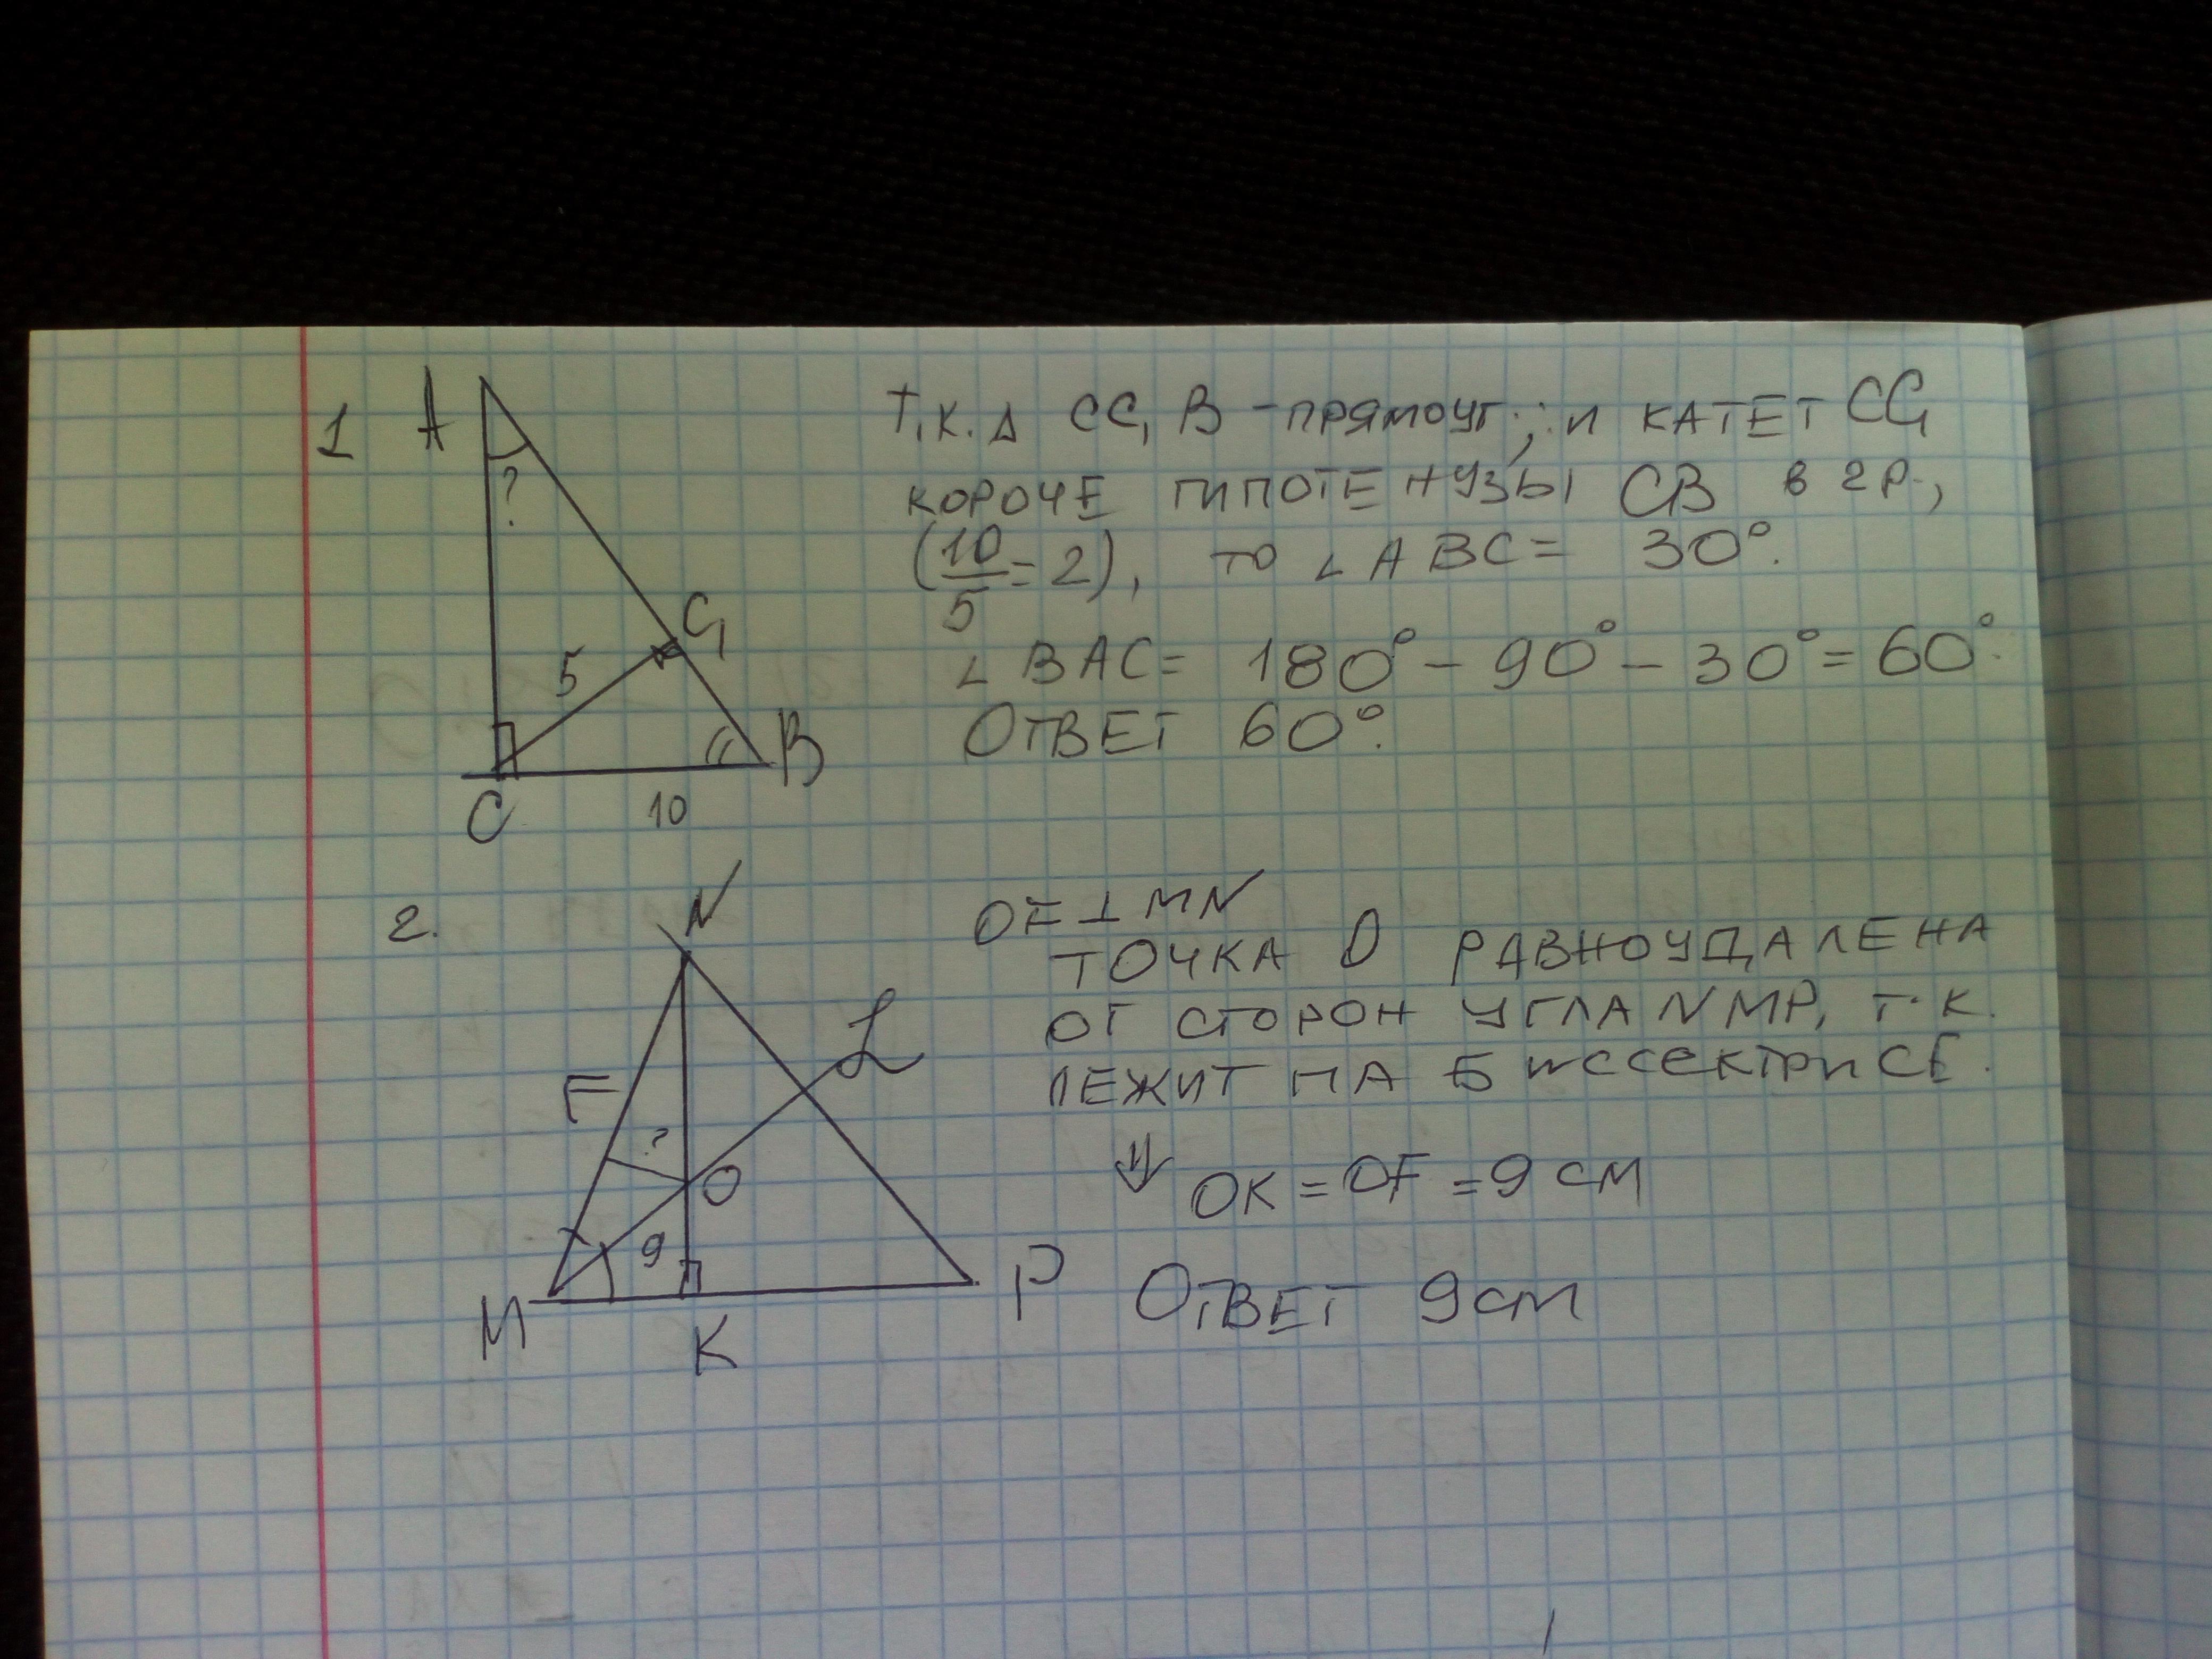 1
A
?
5
C₁
C
10
B
Т.к. Δ CC₁B - прямоуг.; и катет CC₁
короче гипотенузы CB в 2 р.,
(10/5 = 2), то ∠ABC = 30°.
∠BAC = 180° - 90° - 30° = 60°.
Ответ 60°.
2.
N
L
F
?
O
9
M
K
P
OF ⊥ MN
точка O равноудалена
от сторон угла NMP, т.к.
лежит на биссектрисе.
⇓ OK = OF = 9 см
Ответ 9 см